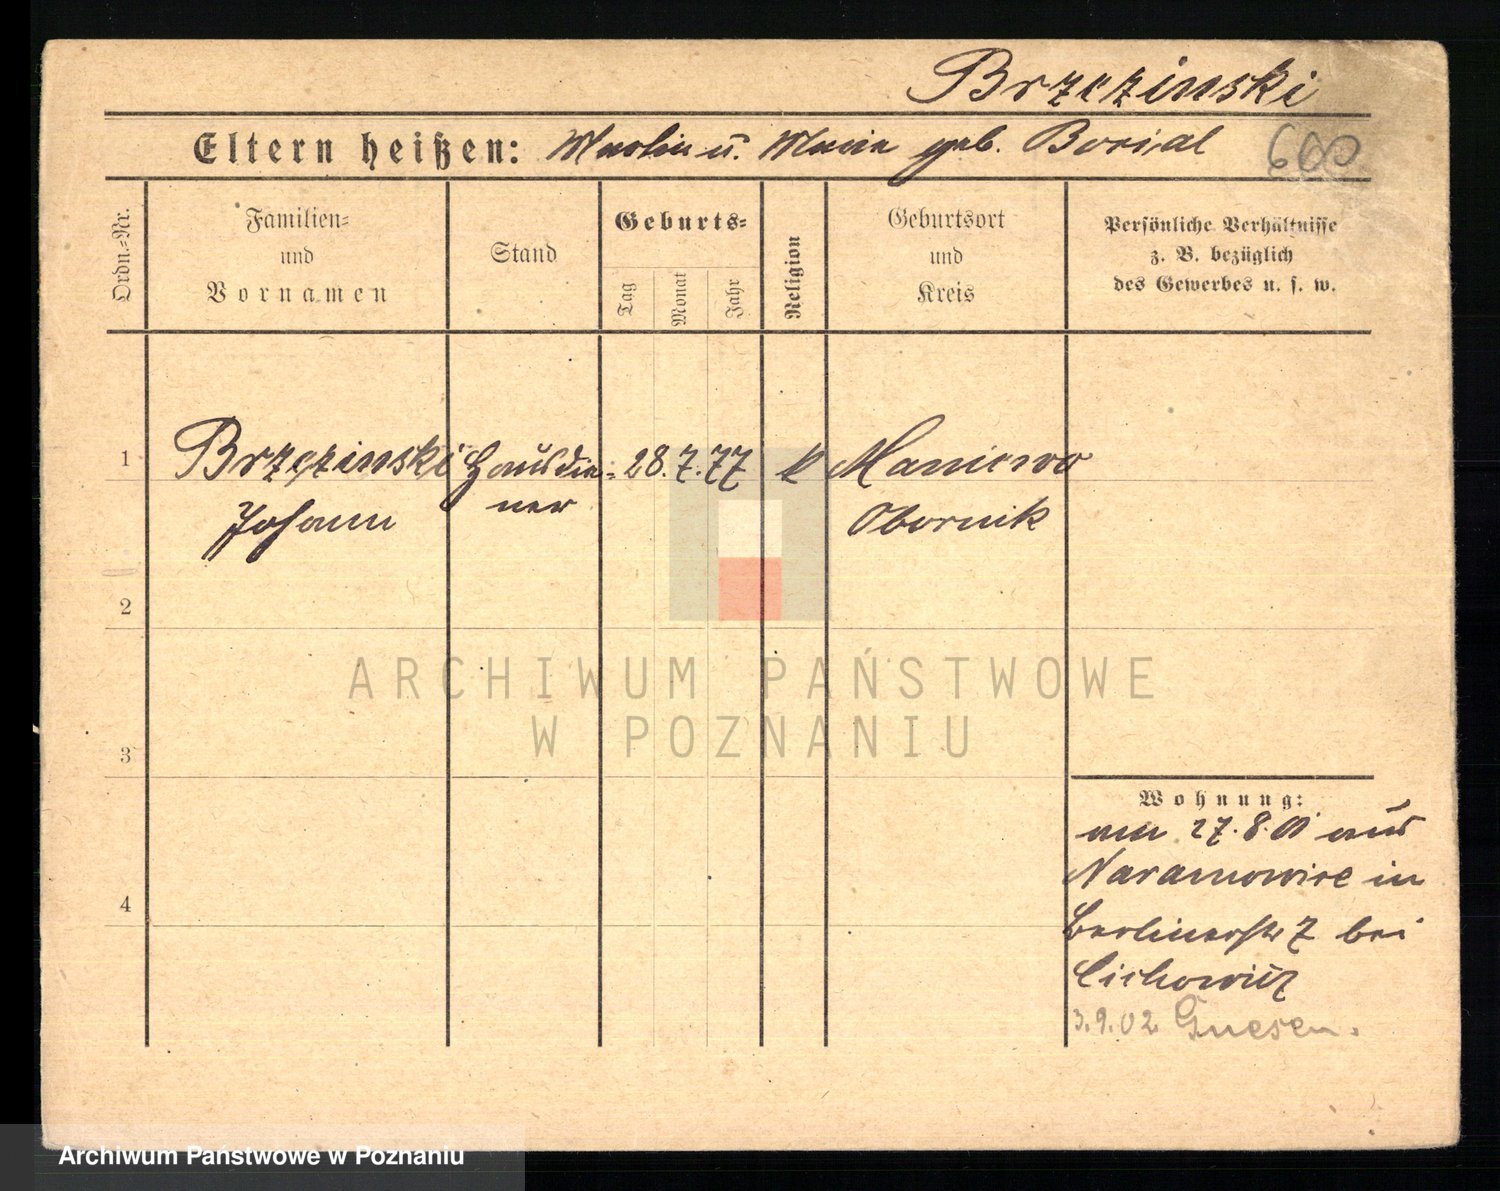 Brzezinski
Eltern heißen: Martin u. Maria geb. Borial
600
Ordn.-Nr.
Familien-
und
Vornamen
Stand
Geburts-
Tag
Monat
Jahr
Religion
Geburtsort
und
Kreis
Persönliche Verhältnisse
z. B. bezüglich
des Gewerbes u. s. w.
1
Brzezinski
Johann
Hausdie-
ner
28. 7. 77
k
Maniewo
Obornik
2
3
4
ARCHIWUM PAŃSTWOWE
W POZNANIU
Wohnung:
am 27. 8. 01 aus
Naramowice in
Berlinerstr 7 bei
Cichowicz
3. 9. 02 Gnesen.
Archiwum Państwowe w Poznaniu